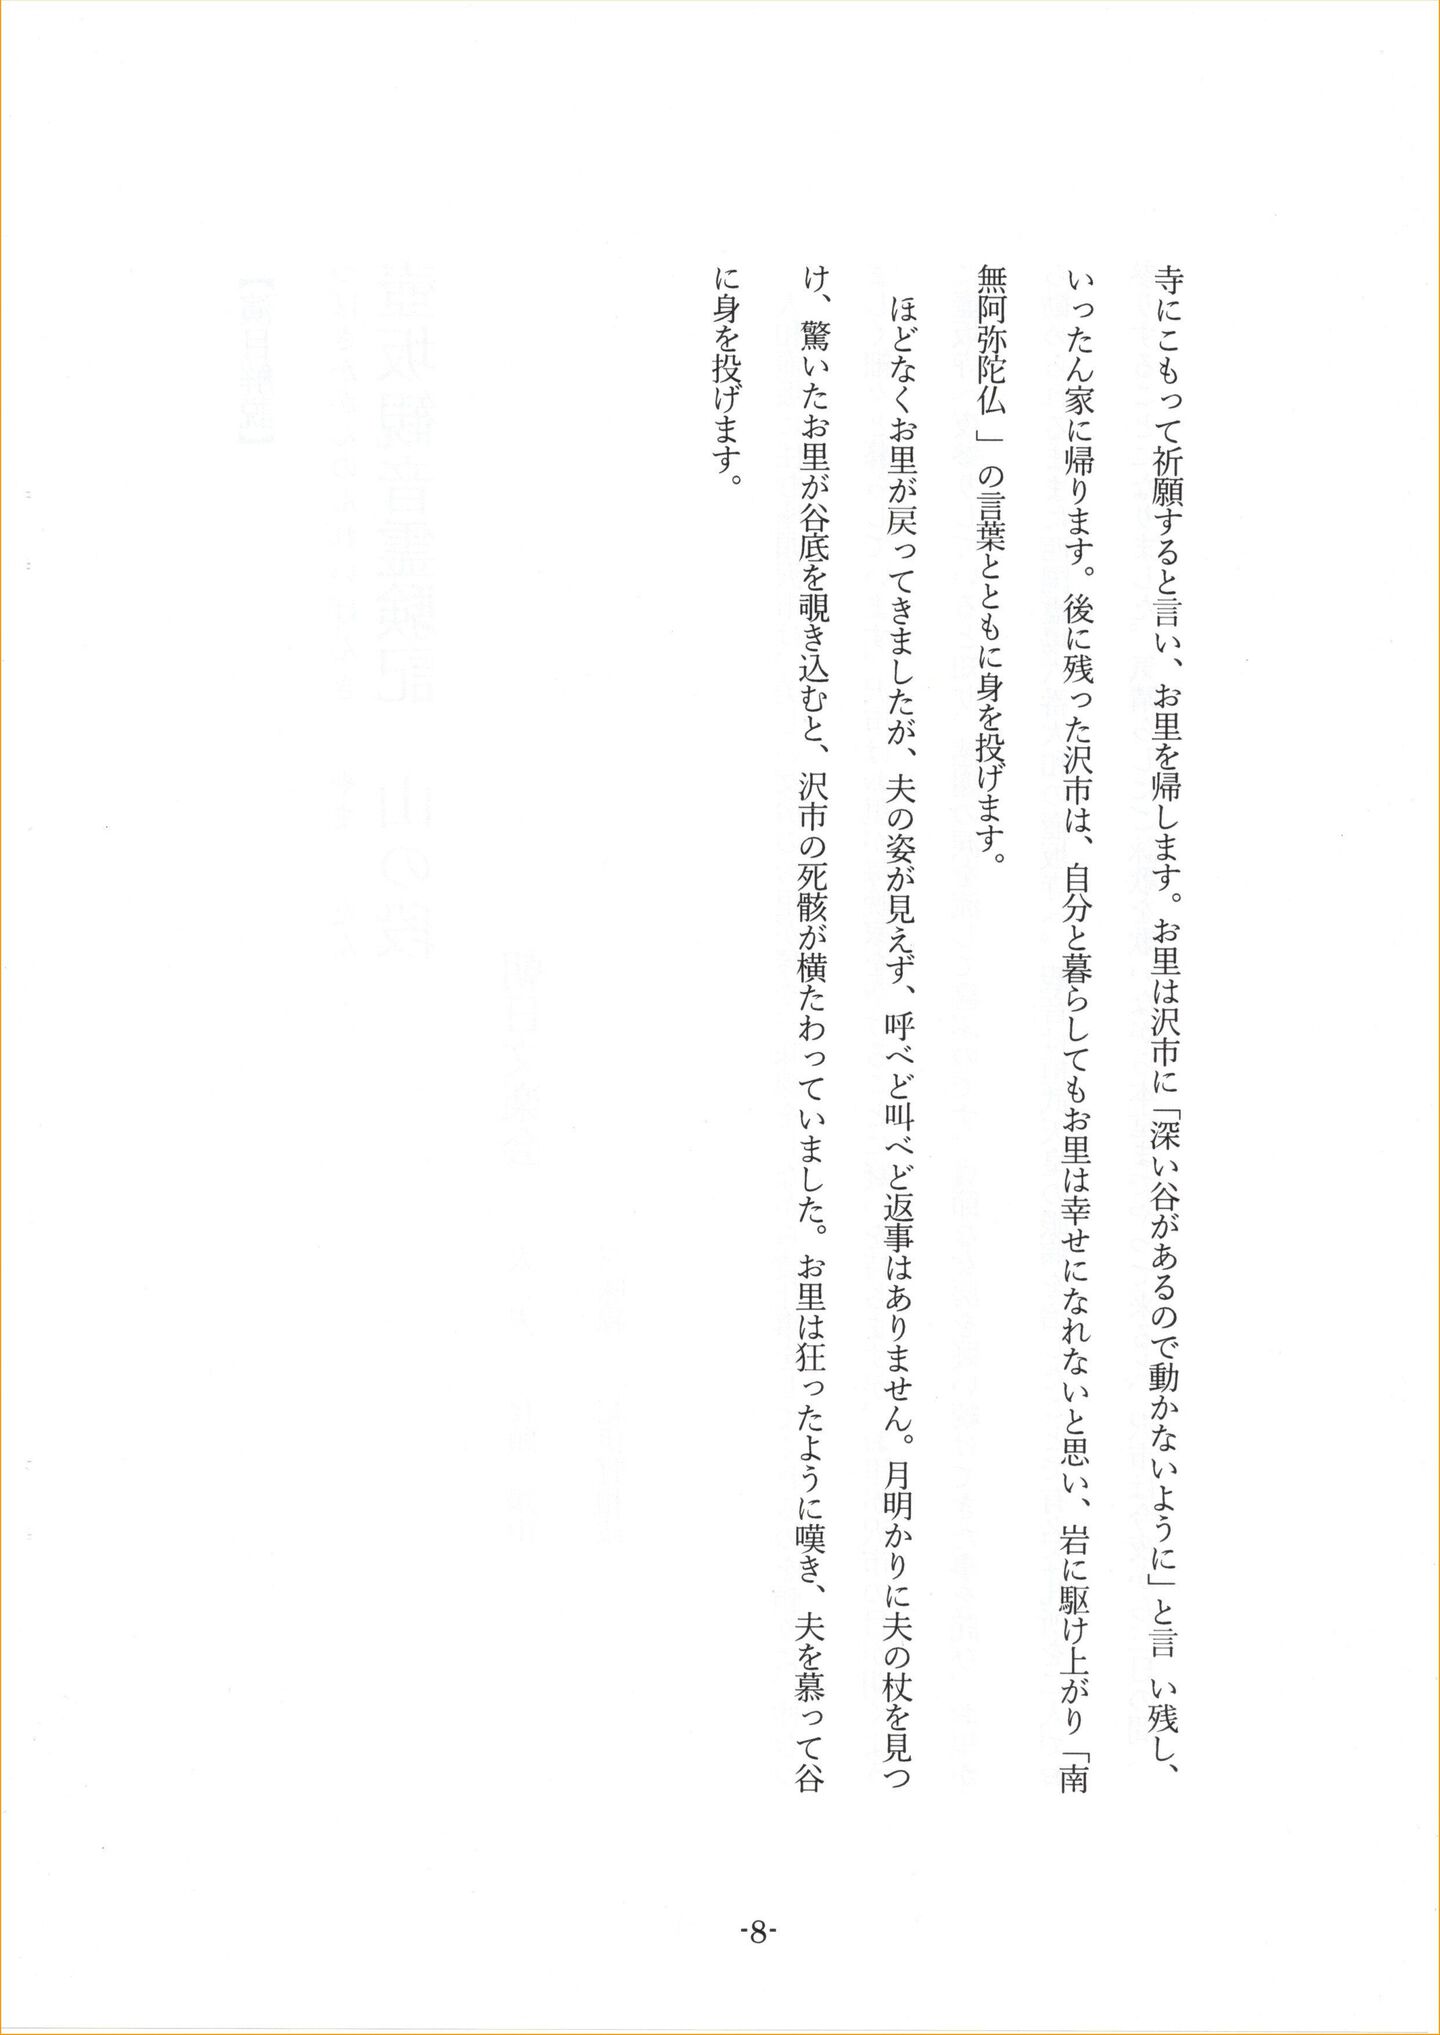 寺にこもって祈願すると言い、お里を帰します。お里は沢市に「深い谷があるので動かないように」と言 い残し、
いったん家に帰ります。後に残った沢市は、自分と暮らしてもお里は幸せになれないと思い、岩に駆け上がり「南
無阿弥陀仏」の言葉とともに身を投げます。
ほどなくお里が戻ってきましたが、夫の姿が見えず、呼べど叫べど返事はありません。月明かりに夫の杖を見つ
け、驚いたお里が谷底を覗き込むと、沢市の死骸が横たわっていました。お里は狂ったように嘆き、夫を慕って谷
に身を投げます。
-8-